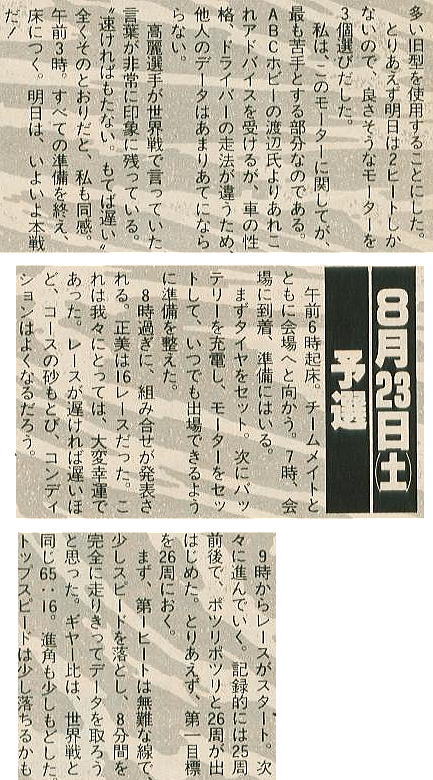 多い旧型を使用することにした。
とりあえず明日は2ヒートしか
ないので、良さそうなモーターを
3個選びだした。
私は、このモーターに関してが、
最も苦手とする部分なのである。
ABCホビーの渡辺氏よりあれこ
れアドバイスを受けるが、車の性
格、ドライバーの走法が違うため、
他人のデータはあまりあてになら
らない。
高麗選手が世界戦で言っていた
言葉が非常に印象に残っている。
〝速ければもたない。もては遅い〟
全くそのとおりだと、私も同感。
午前3時。すべての準備を終え、
床につく。明日は、いよいよ本戦
だ!
8月23日(土)
予選
午前6時起床。チームメイトと
ともに会場へと向かう。7時、会
場に到着、準備にはいる。
まずタイヤをセット。次にバッ
テリーを充電し、モーターをセッ
トして、いつでも出場できるよう
に準備を整えた。
8時過ぎに、組み合せが発表さ
れる。正美は16レースだった。こ
れは我々にとっては、大変幸運で
あった。レースが遅ければ遅いほ
ど、コースの砂もとび、コンディ
ションはよくなるだろう。
9時からレースがスタート。次
々に進んでいく。記録的には25周
前後で、ポツリポツリと26周が出
はじめた。とりあえず、第一目標
を26周におく。
まず、第一ヒートは無難な線で、
少しスピードを落とし、8分間を
完全に走りきってデータを取ろう
と思った。ギヤー比は、世界戦と
同じ65:16。進角も少しもどした。
トップスピードは少し落ちるかも